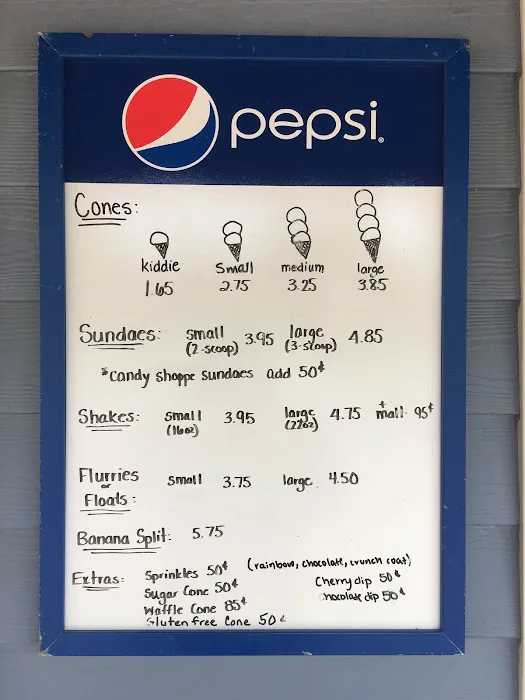 pepsi®
Cones:
kiddie small medium large
1.65 2.75 3.25 3.85
Sundaes: small 3.95 large 4.85
(2-scoop) (3-scoop)
*Candy shoppe sundaes add 50¢
Shakes: small 3.95 large 4.75 + malt 95¢
(16oz) (22oz)
Flurries small 3.75 large 4.50
or
Floats:
Banana Split: 5.75
Extras: Sprinkles 50¢ (rainbow, chocolate, crunch coat)
Sugar Cone 50¢ Cherry dip 50¢
Waffle Cone 85¢ chocolate dip 50¢
Gluten free Cone 50¢